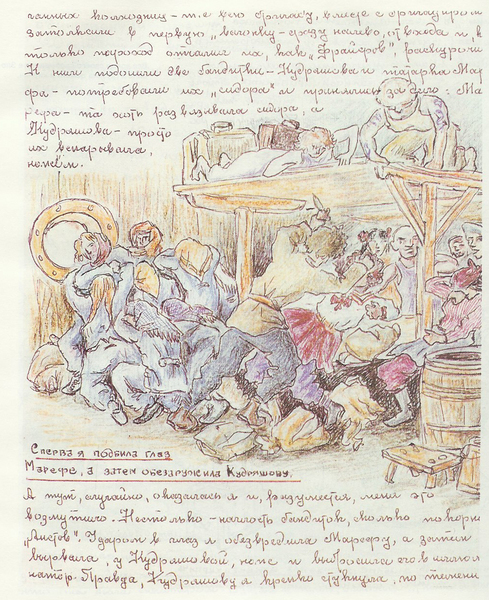 ганных колхозниц - т.е. всю бригаду, вместе с бригадиром
затолкали в первую „вагонку" - сразу налево, от входа и, в
только пароход отчалил их, как „фраеров", раскурочи
К ним подошли две бандитки - Кудряшова и татарка Мар
фа - потребовали их „сидора" и принялись за дело: Ма
рефа - та хоть развязывала сидора, а
Кудряшова - просто
их вспарывала,
ножом.
Сперва я подбила глаз
Марефе, а затем обезаружила Кудряшову.
А тут, случайно, оказалась я и, разумеется, меня это
возмутило. Не столько - наглость бандиток, сколько покорн
„Листов". Ударом в глаз я обезвредила Марефу, а затем
вырвала, у Кудряшовой, нож и выбросила его в иллюми
натор. Правда, Кудряшову я крепко стукнула, по темени